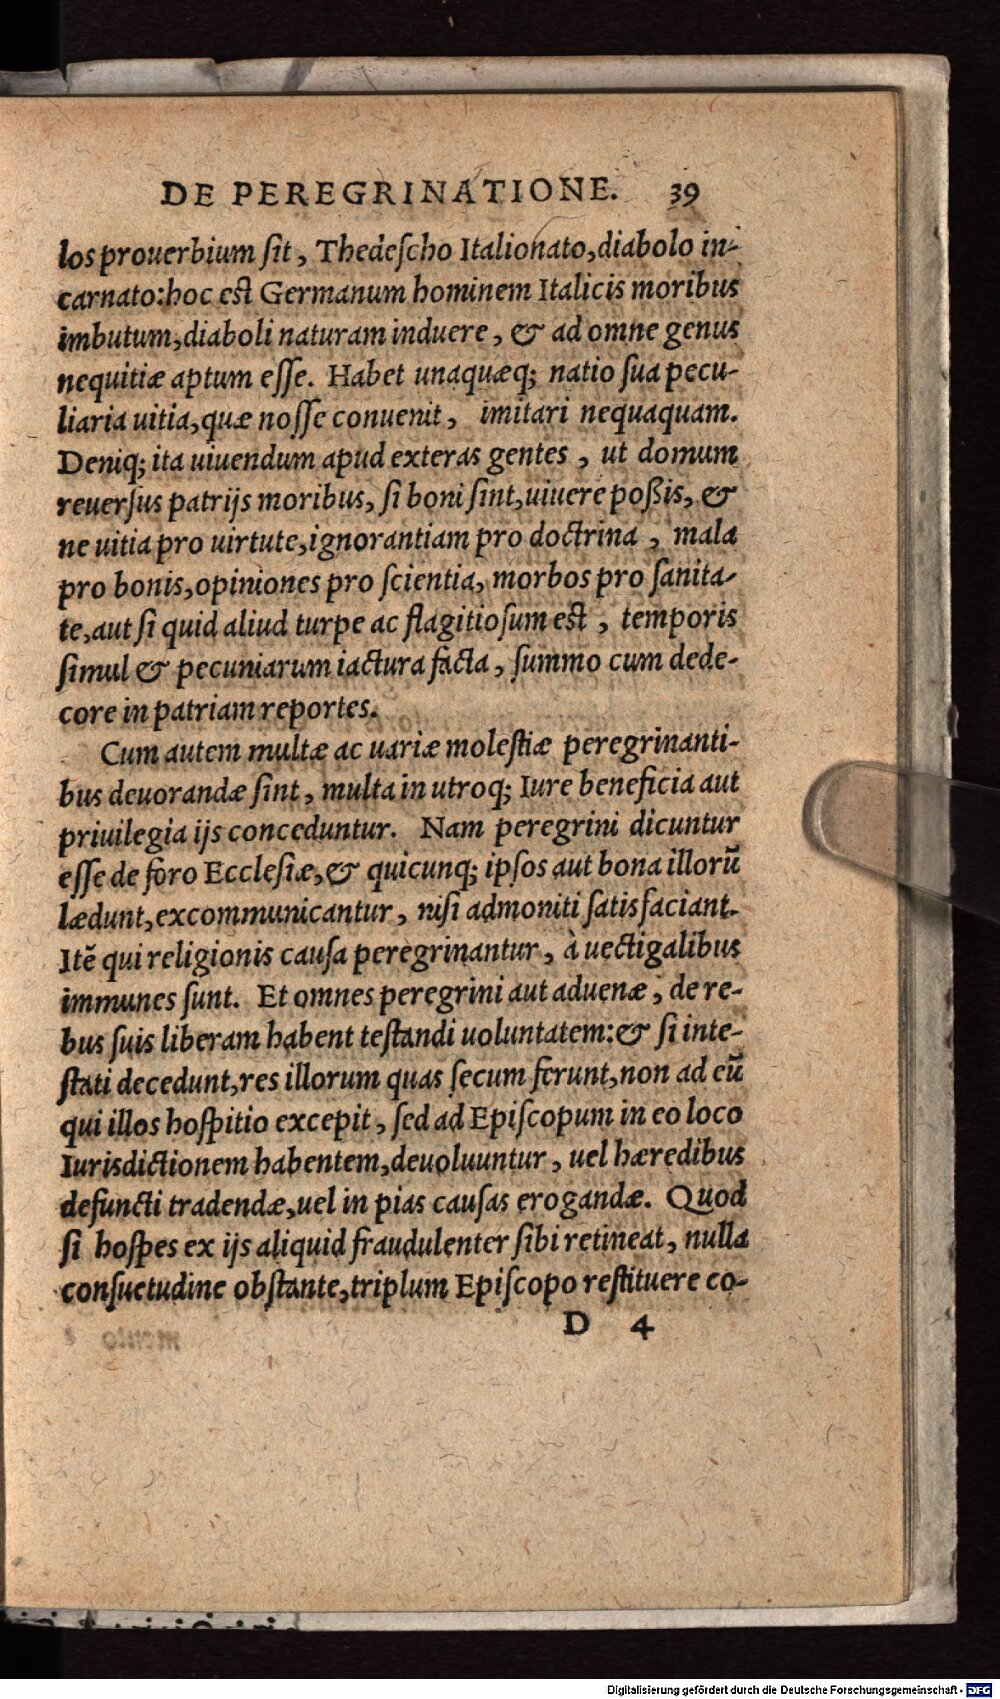 DE PEREGRINATIONE. 39
los prouerbium ſit, Thedeſcho Italionato, diabolo in-
carnato: hoc eſt Germanum hominem Italicis moribus
imbutum, diaboli naturam induere, & ad omne genus
nequitiæ aptum eſſe. Habet unaquæq; natio ſua pecu-
liaria uitia, quæ noſſe conuenit, imitari nequaquam.
Deniq; ita uiuendum apud exteras gentes, ut domum
reuerſus patrijs moribus, ſi boni ſint, uiuere poßis, &
ne uitia pro uirtute, ignorantiam pro doctrina, mala
pro bonis, opiniones pro ſcientia, morbos pro ſanita-
te, aut ſi quid aliud turpe ac flagitioſum eſt, temporis
ſimul & pecuniarum iactura facta, ſummo cum dede-
core in patriam reportes.
Cum autem multæ ac uariæ moleſtiæ peregrinanti-
bus deuorandæ ſint, multa in utroq; Iure beneficia aut
priuilegia ijs conceduntur. Nam peregrini dicuntur
eſſe de foro Eccleſiæ, & quicunq; ipſos aut bona illorū
lædunt, excommunicantur, niſi admoniti ſatisfaciant.
Itē qui religionis cauſa peregrinantur, à uectigalibus
immunes ſunt. Et omnes peregrini aut aduenæ, de re-
bus ſuis liberam habent teſtandi uoluntatem: & ſi inte-
ſtati decedunt, res illorum quas ſecum ferunt, non ad eū
qui illos hoſpitio excepit, ſed ad Epiſcopum in eo loco
Iurisdictionem habentem, deuoluuntur, uel hæredibus
defuncti tradendæ, uel in pias cauſas erogandæ. Quod
ſi hoſpes ex ijs aliquid fraudulenter ſibi retineat, nulla
conſuetudine obſtante, triplum Epiſcopo reſtituere co-
D 4
Digitalisierung gefördert durch die Deutsche Forschungsgemeinschaft - DFG